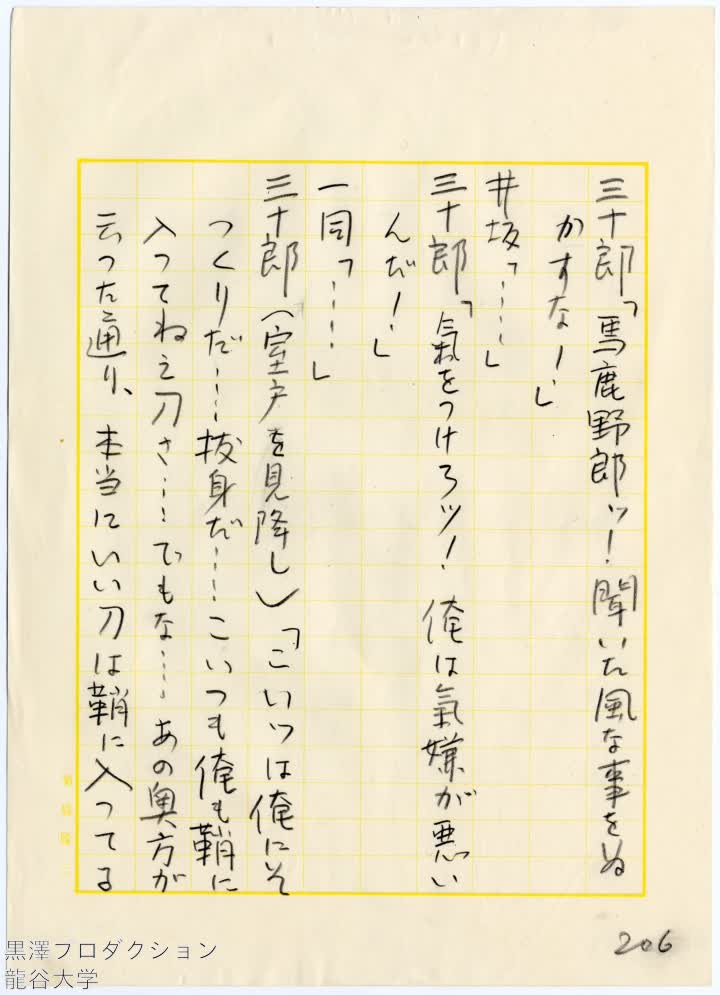 三十郎「馬鹿野郎ッ！聞いた風な事をぬ
かすな！」
井坂「……」
三十郎「気をつけろッ！俺は氣嫌が悪い
んだ！」
一同「……」
三十郎（室戸を見降し）「こいつは俺にそ
っくりだ……抜身だ……こいつも俺も鞘に
入ってねえ刀さ……でもな……あの奥方が
云った通り、本当にいい刀は鞘に入ってる
206
黒澤プロダクション
龍谷大学